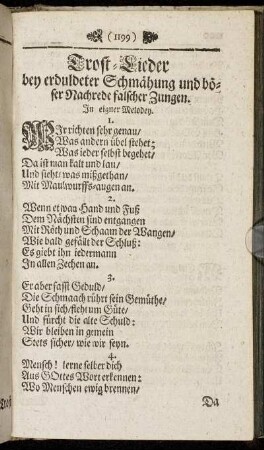 (1199)
Trost-Lieder
bey erduldeter Schmähung und bö-
ser Nachrede falscher Zungen.
In eigner Melodey.
1.
WIr richten sehr genau/
Was andern übel stehet:
Was ieder selbst begehet/
Da ist man kalt und lau/
Und sieht/ was mißgethan/
Mit Maulwurffs-augen an.
2.
Wenn etwan Hand und Fuß
Dem Nächsten sind entgangen
Mit Röth und Schaam der Wangen/
Wie bald gefällt der Schluß:
Es giebt ihn iedermann
In allen Zechen an.
3.
Er aber fasst Geduld/
Die Schmaach rührt sein Gemüthe/
Geht in sich/ fleht um Güte/
Und fürcht die alte Schuld:
Wir bleiben in gemein
Stets sicher/ wie wir seyn.
4.
Mensch! lerne selber dich
Aus GOttes Wort erkennen:
Wo Menschen ewig brennen/
Da